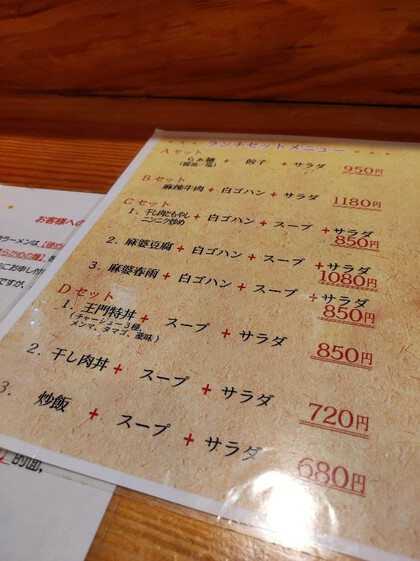 ランチセットメニュー
Aセット
らぁ麺 + 餃子 + サラダ 950円
(醤油・塩)
Bセット
麻辣牛肉 + 白ゴハン + サラダ 1180円
Cセット
1. 干し肉ともやし + 白ゴハン + スープ + サラダ 850円
ニンニク炒め
2. 麻婆豆腐 + 白ゴハン + スープ + サラダ 1080円
3. 麻婆春雨 + 白ゴハン + スープ + サラダ 850円
Dセット
1. 王門特丼 + スープ + サラダ 850円
(チャーシュー3種、
メンマ、タマゴ、薬味)
2. 干し肉丼 + スープ + サラダ 720円
3. 炒飯 + スープ + サラダ 680円
お客様への
ラーメンは
にお申し付
ですが、